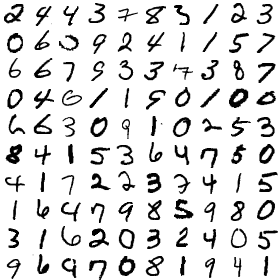 2 4 4 3 7 8 3 1 2 3
0 6 0 9 2 4 1 1 5 7
6 6 7 9 3 3 7 3 8 7
0 4 6 1 1 9 0 1 0 0
6 6 3 0 9 1 0 2 5 3
8 4 1 5 3 6 4 7 5 0
4 1 7 2 2 3 2 4 1 5
1 6 4 7 9 8 5 9 8 0
3 1 6 2 0 3 2 4 0 5
9 6 9 7 0 8 1 9 4 1